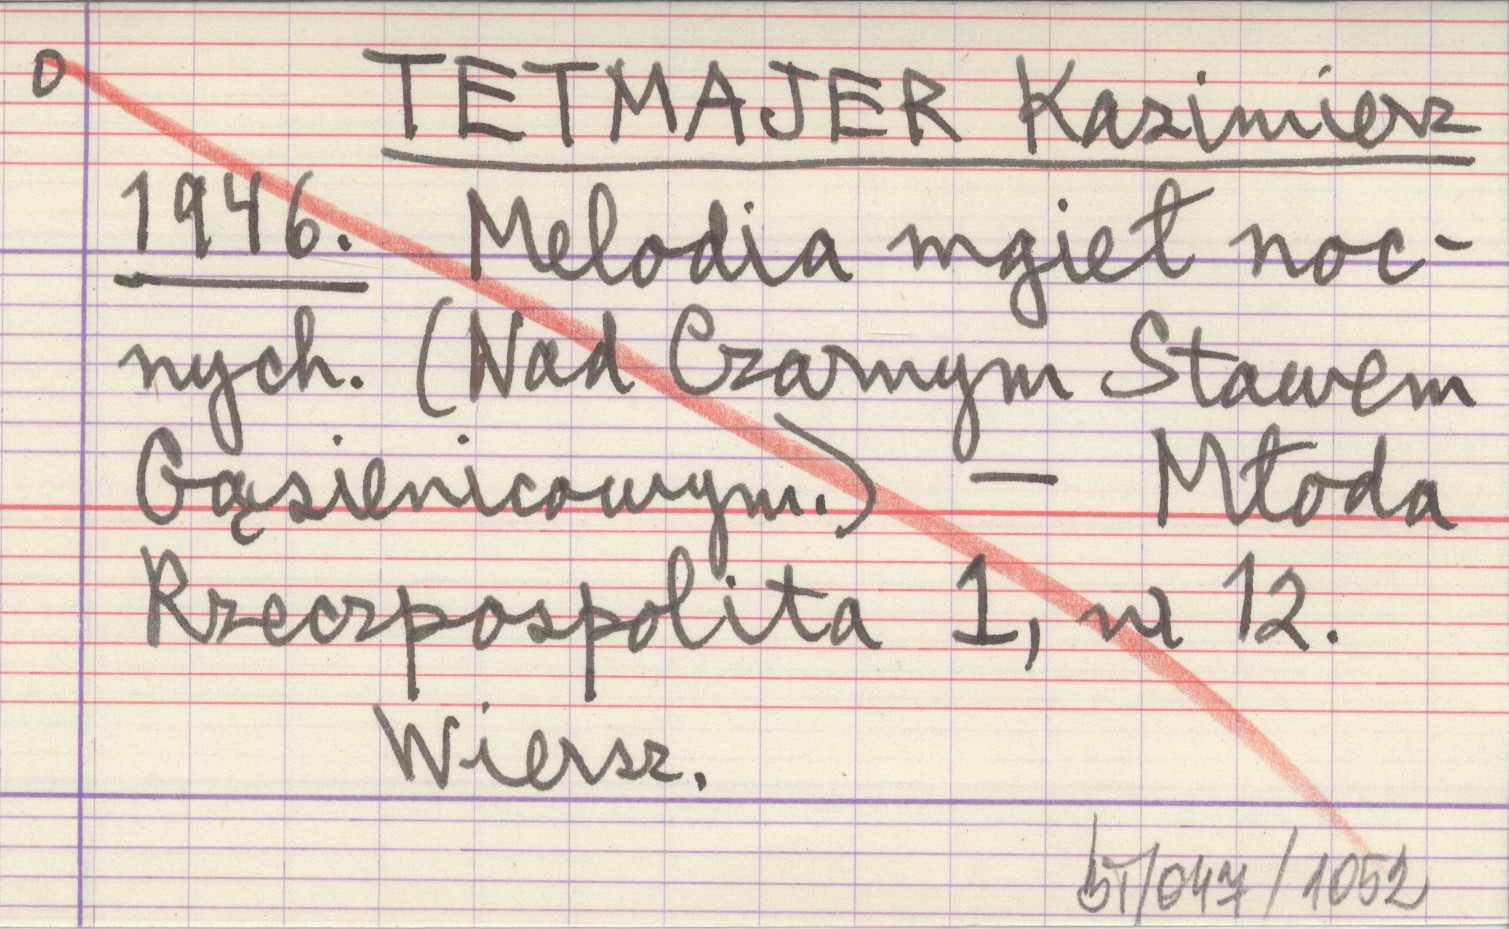 0 TETMAJER Kazimierz
1946. Melodia mgieł noc-
nych. (Nad Czarnym Stawem
Gąsienicowym.) — Młoda
Rzeczpospolita 1, nr 12.
Wiersz.
bT/047/1052